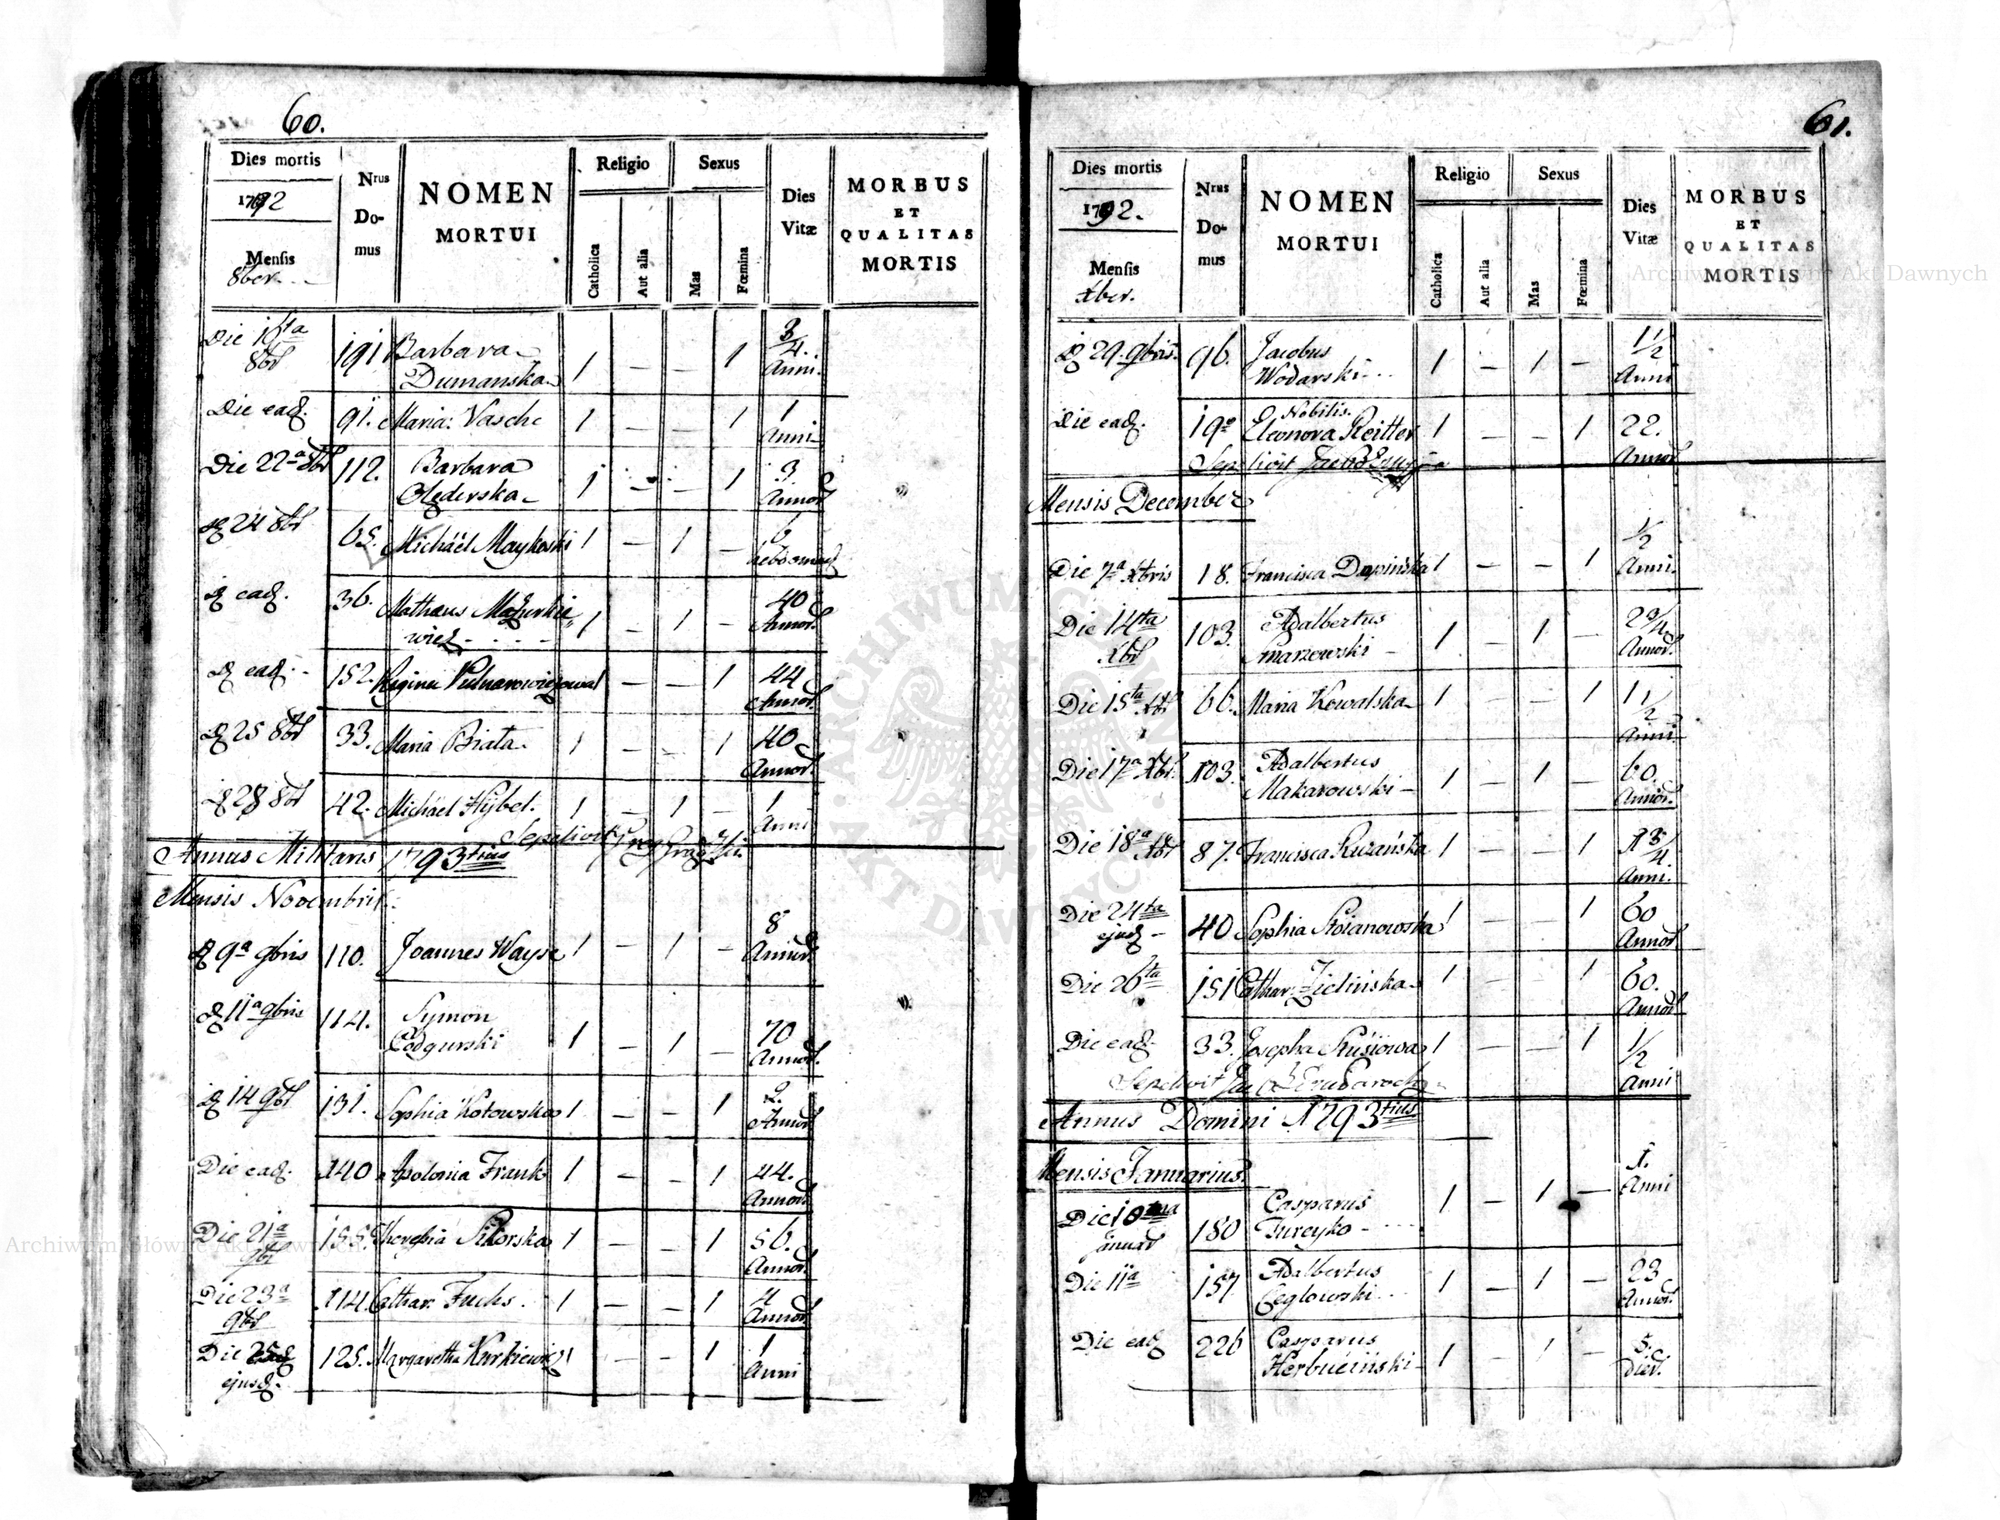 60.
Dies mortis
1792
Mensis
8ber
Nrus
Do-
mus
NOMEN
MORTUI
Religio
Catholica
Aut alia
Sexus
Mas
Fœmina
Dies
Vitæ
MORBUS
ET
QUALITAS
MORTIS
Die 16ta 8br 191 Barbara Dumanska 1 – – 1 3/4 Anni
Die ead. 91. Maria Vasche 1 – – 1 1 Anni
Die 22a 8br 112. Barbara 1 – – 1 3 Annor
D 24 8br 65. Michäel Maykoski 1 – 1 – 6 hebdomad
D ead. 36. Mathæus Mazurkie„ wicz 1 – 1 – 40 Annor.
D ead. 152. Regina 1 – – 1 44 Annor.
D 25 8br 33. Maria Biała 1 – – 1 40 Annor.
D 28 8br 42. Michäel Hybel. 1 – 1 – 1 Anni
Sepelivit
Annus Militaris 1793tius
Mensis Novembris
D 9a 9bris 110. Joannes Wayse 1 – 1 – 8 Annor
D 11a 9bris 114. Symon Podgurski 1 – 1 – 70 Annor.
D 14 9br 131. Sophia Kotowska 1 – – 1 2 Annor
Die ead. 140 Apolonia Frank 1 – – 1 44. Annor
Die 21a 9br 155. Theresia Sikorska 1 – – 1 56. Annor.
Die 23a 9br 114. Cathar. Fuchs. 1 – – 1 4 Annor.
Die ejusd. 125. Margaretha Kurkiewicz 1 – – 1 1 Anni
61.
Dies mortis
1792.
Mensis
Xber.
Nrus
Do-
mus
NOMEN
MORTUI
Religio
Catholica
Aut alia
Sexus
Mas
Fœmina
Dies
Vitæ
MORBUS
ET
QUALITAS
MORTIS
D 29. 9bris. 96. Jacobus Wodarski 1 – 1 – 1 1/2 Anni
Die ead. 190 Nobilis. Eleonora Reitter 1 – – 1 22. Annor
Sepelivit
Mensis December
Die 7a Xbris 18. Francisca Dupińska 1 – – 1 1/2 Anni.
Die 14ta Xbr 103. Adalbertus Smarzowski 1 – 1 – 2 3/4 Annor.
Die 15ta Xbr 66. Maria Kowalska 1 – – 1 1 1/2 Anni.
Die 17a Xbr. 103. Adalbertus Makarowski 1 – 1 – 60. Annor.
Die 18a Xbr 87. Francisca 1 – – 1 1 3/4. Anni.
Die 24ta ejusd 40 Sophia 1 – – 1 60 Annor
Die 26ta 151 Cathar. Zielińska 1 – – 1 60. Annor
Die ead. 33. Josepha Kusiowa 1 – – 1 1/2 Anni
Sepelivit
Annus Domini 1793tius
Mensis Januarius.
Die 10ma Januar 180 Casparus Turcyko 1 – 1 – 1. Anni
Die 11a 157 Adalbertus Ceglowski 1 – 1 – 23 Annor.
Die ead 226 Casparus 1 – 1 – 5. Dier.
Archiwum Główne Akt Dawnych
Archiwum Główne Akt Dawnych
ARCHIWUM GŁÓWNE AKT DAWNYCH